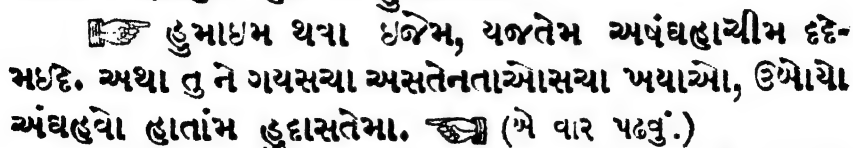 ☞ હુમાઇમ થવા ઇજેમ, યજતેમ અષંઘહાચીમ દદે-
મઇદે. અથા તુ ને ગયસચા અસતેનતાઓસચા ખયાઓ, ઉબોયો
અંઘહવો હાતાંમ હુદાસતેમા. ☜ (બે વાર પઢવું.)